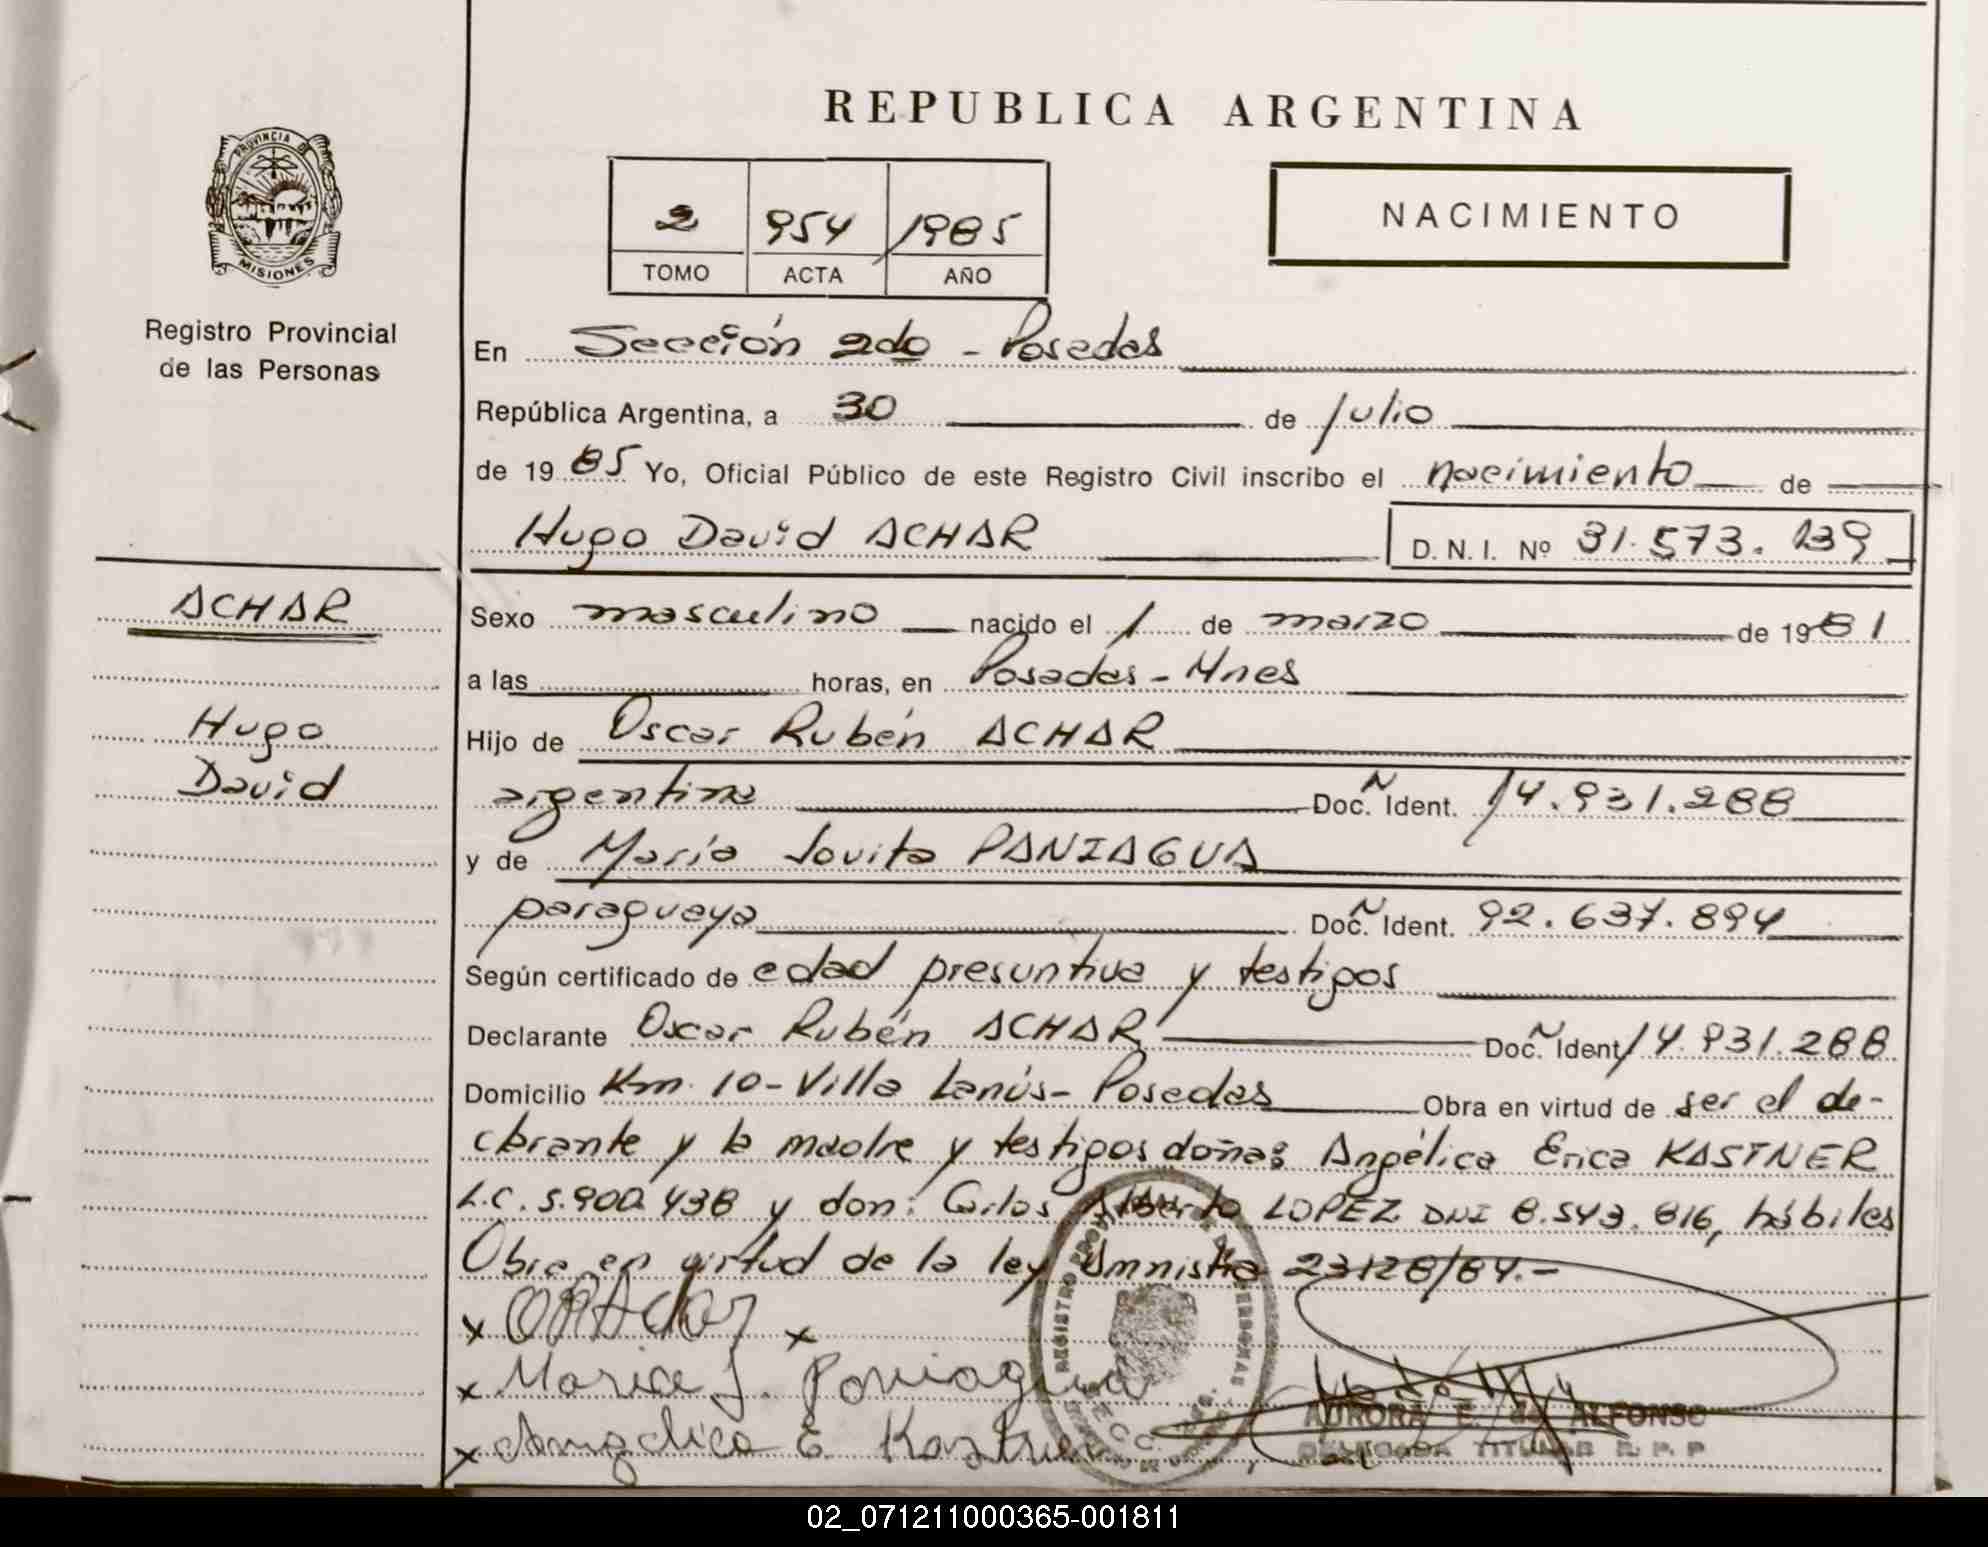 REPUBLICA ARGENTINA
PROVINCIA DE
MISIONES
Registro Provincial
de las Personas
2 954 1985
TOMO ACTA AÑO
NACIMIENTO
En Sección 2do - Posadas
República Argentina, a 30 de julio
de 1985 Yo, Oficial Público de este Registro Civil inscribo el nacimiento de
Hugo David ACHAR D. N. I. Nº 31.573.139
ACHAR
Hugo
David
Sexo masculino nacido el 1 de marzo de 1981
a las horas, en Posadas - Mnes
Hijo de Oscar Rubén ACHAR
argentino Doc. Ident. 14.931.288
y de María Jovita PANIAGUA
paraguaya Doc. Ident. 92.637.894
Según certificado de edad presuntiva y testigos
Declarante Oscar Rubén ACHAR Doc. Ident. 14.931.288
Domicilio Km. 10 - Villa Lanús - Posadas Obra en virtud de ser el de-
clarante y la madre y testigos doña: Angélica Erica KASTNER
L.C. 5.900.438 y don: Carlos Alberto LOPEZ DNI 8.543.816, hábiles
Obra en virtud de la ley Amnistia 23128/84.-
x x
x Maria J. Paniagua
x Angelica E. Kastner
AURORA E. de ALFONSO
DELEGADA TITULAR R. P. P
02_071211000365-001811